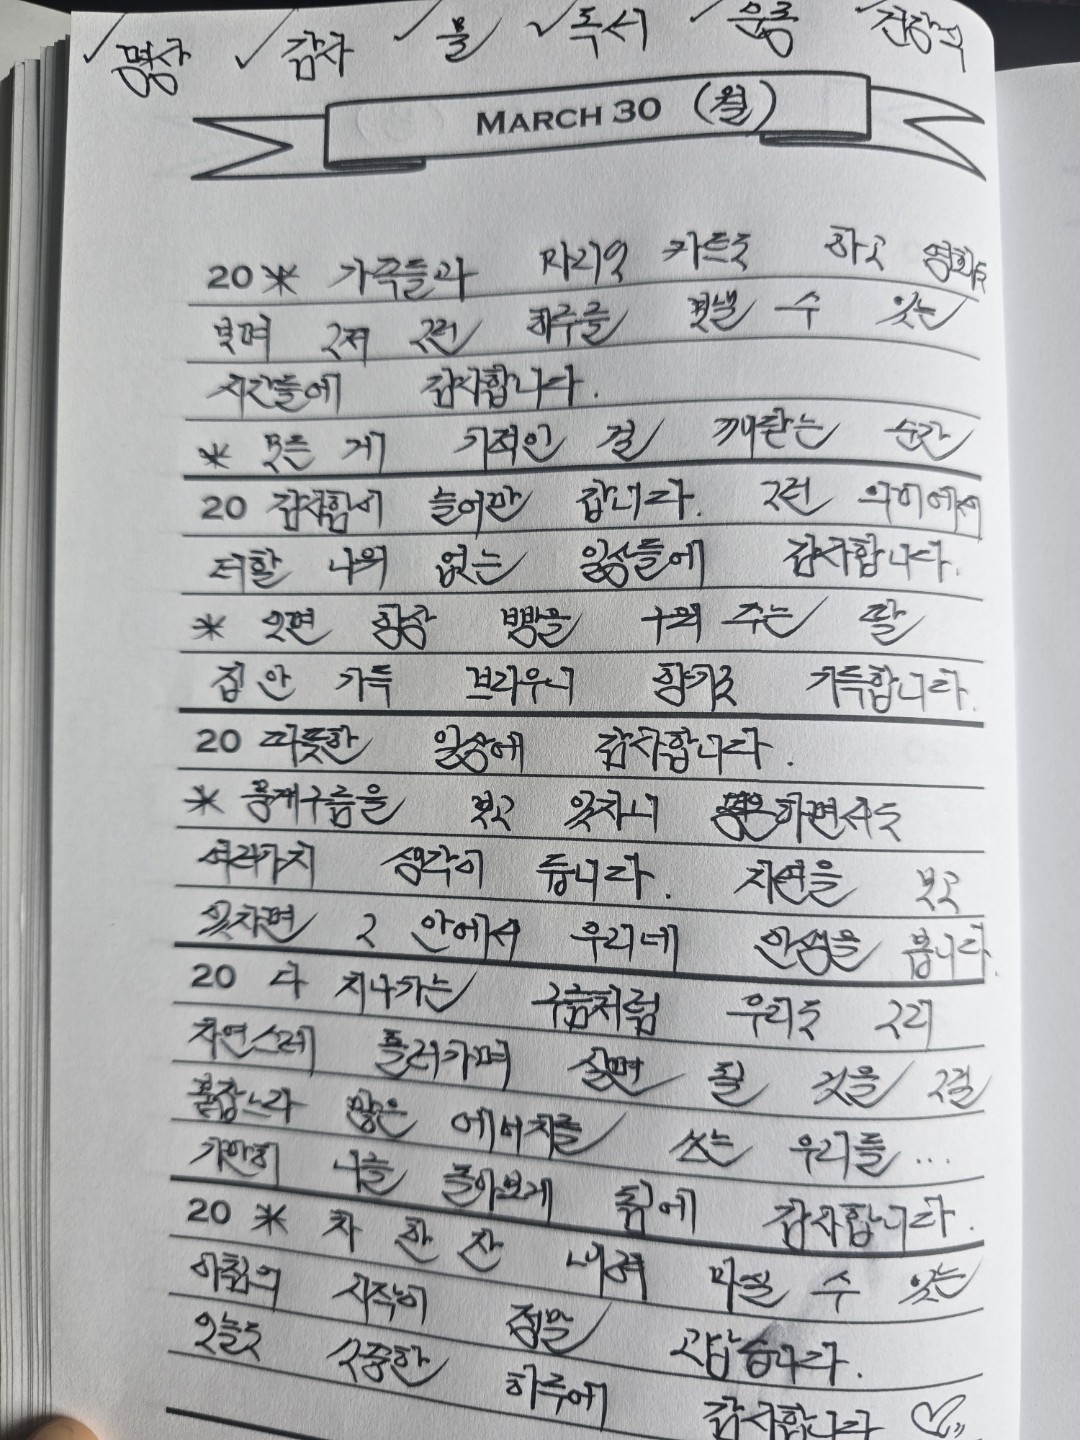 ✓명상 ✓감사 ✓물 ✓독서 ✓운동 ✓건강식
MARCH 30 (월)
20 * 가족들과 마리오 카트도 하고 영화도
보며 그저 그런 하루를 보낼 수 있는
시간들에 감사합니다.
* 모든 게 기적인 걸 깨닫는 순간
20 감사함이 늘어만 갑니다. 그런 의미에서
더할 나위 없는 일상들에 감사합니다.
* 오면 항상 빵을 구워 주는 딸
집 안 가득 브라우니 향기로 가득합니다.
20 따뜻한 일상에 감사합니다.
* 뭉게구름을 보고 있자니 멍하면서도
여러가지 생각이 듭니다. 자연을 보고
있자면 그 안에서 우리네 인생을 봅니다.
20 다 지나가는 구름처럼 우리도 그리
자연스레 흘러가며 살면 될 것을 그걸
붙잡느라 많은 에너지를 쓰는 우리들...
가만히 나를 돌아보게 됨에 감사합니다.
20 * 차 한 잔 내려 마실 수 있는
아침의 시작이 정말 고맙습니다.
오늘도 소중한 하루에 감사합니다 ♡